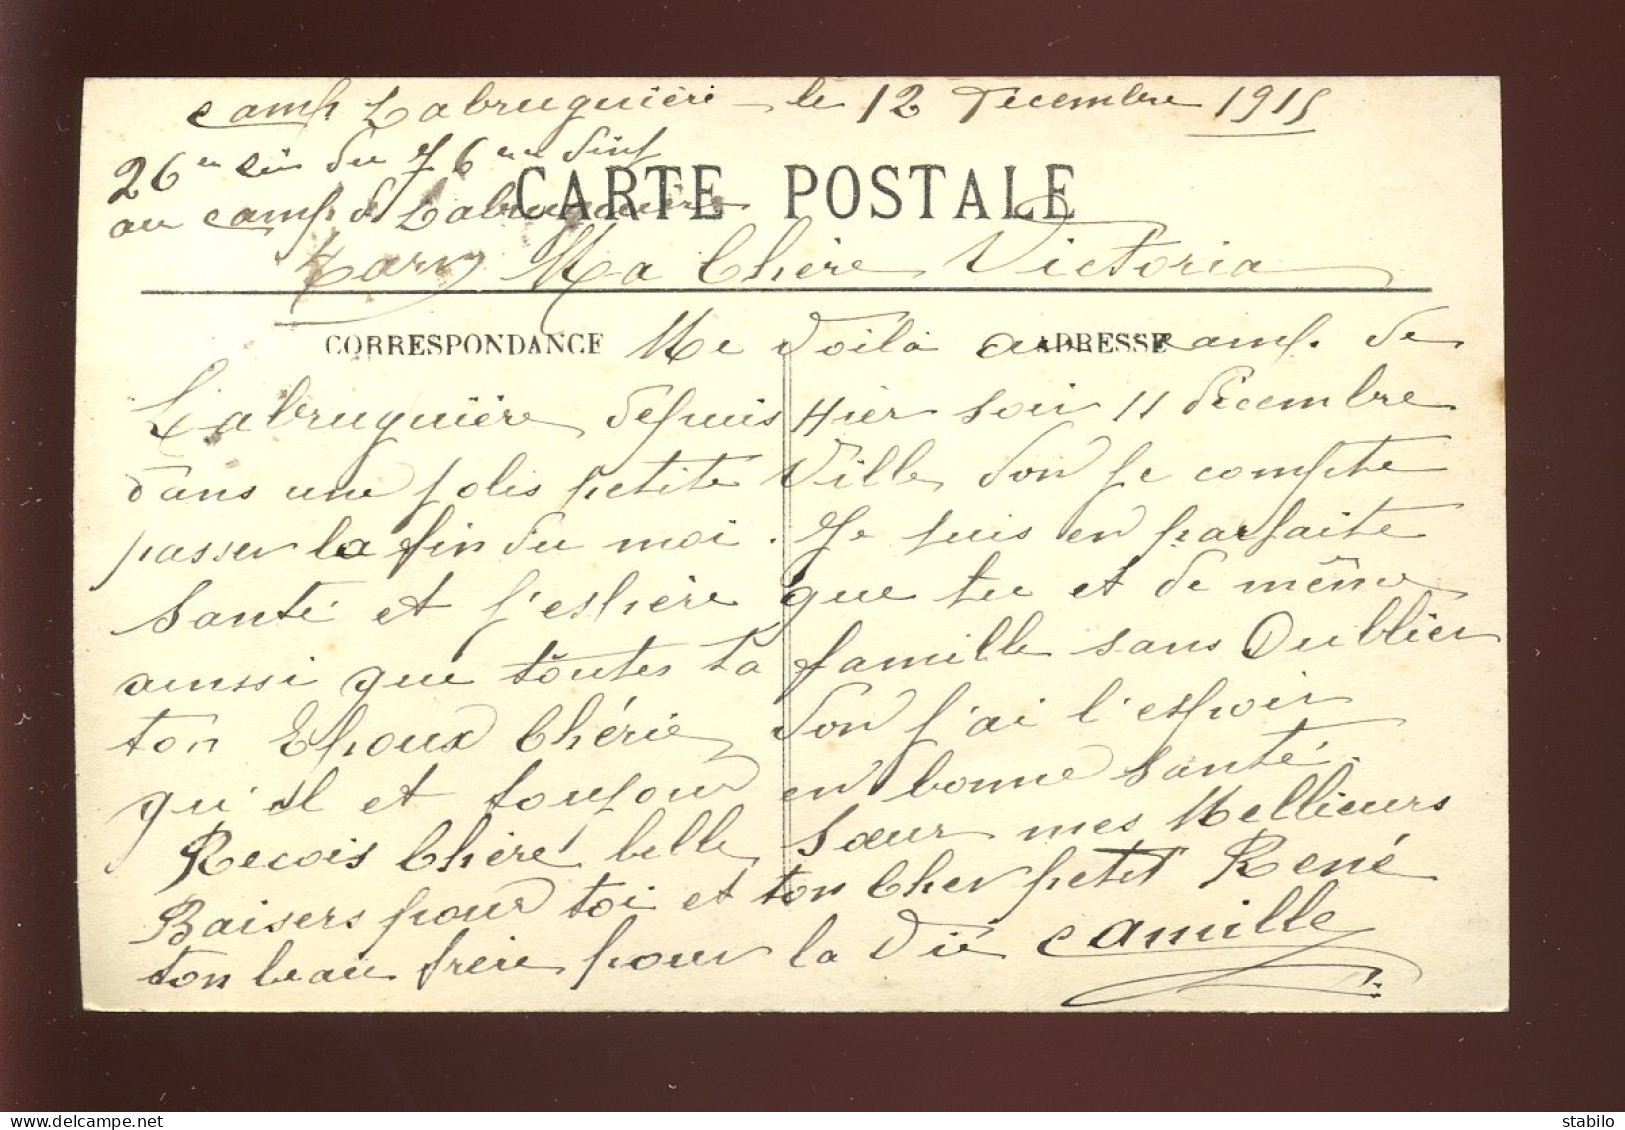 Camp Labruguière le 12 Décembre 1915
26em Cie du 76em d'inf
au camp de Labruguière
CARTE POSTALE
Tarn Ma Chère Victoria
CORRESPONDANCE ADRESSE
Me voilà au camp de
Labruguière depuis Hier soir 11 décembre
dans une jolis petite ville don je compte
passer la fin du moi. Je suis en parfaite
santé et j'espère que tu et de même
ainssi que toutes ta famille sans Oublier
ton Epoux Chérie don j'ai l'espoir
qu'il et toujour en bonne santé.
Recois Chère belle Sœur mes Mellieurs
Baisers pour toi et ton Cher petit René
ton beau frère pour la vie Camille
stabilo
delcampe.net